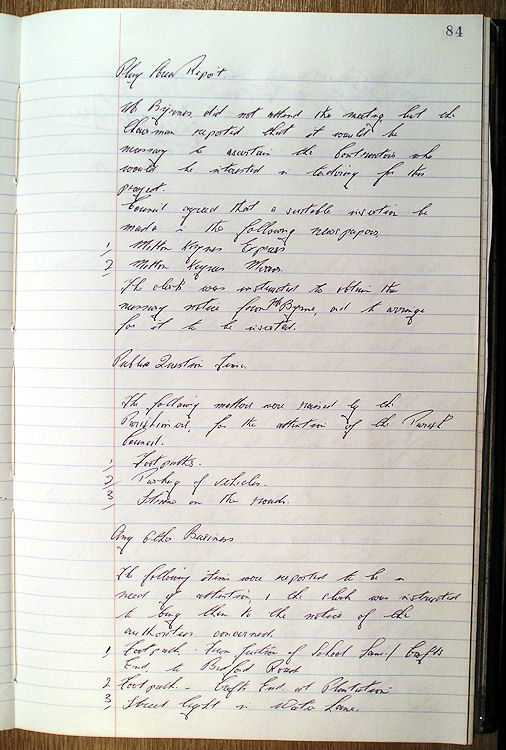 84
Play Area Report.
Mr Byrnes did not attend the meeting but the
Chairman reported that it would be
necessary to ascertain the Contractors who
would be interested in tendering for this
project.
Council agreed that a suitable insertion be
made in the following newspapers
1, Milton Keynes Express
2 Milton Keynes Mirror.
The clerk was instructed to obtain the
necessary notice from Mr Byrne, and to arrange
for it to be inserted.
Public Question Time.
The following matters were raised by the
Parishioners, for the attention of the Parish
Council.
1, Footpaths.
2, Parking of vehicles.
3, on the roads.
Any Other Business
The following items were reported to be in
need of attention, & the clerk was instructed
to bring them to the notice of the
authorities concerned.
1, Footpath - From junction of School Lane / Crofts
End, to Bedford Road
2 Footpath - Crofts End, at Plantation
3, Street light in Water Lane.